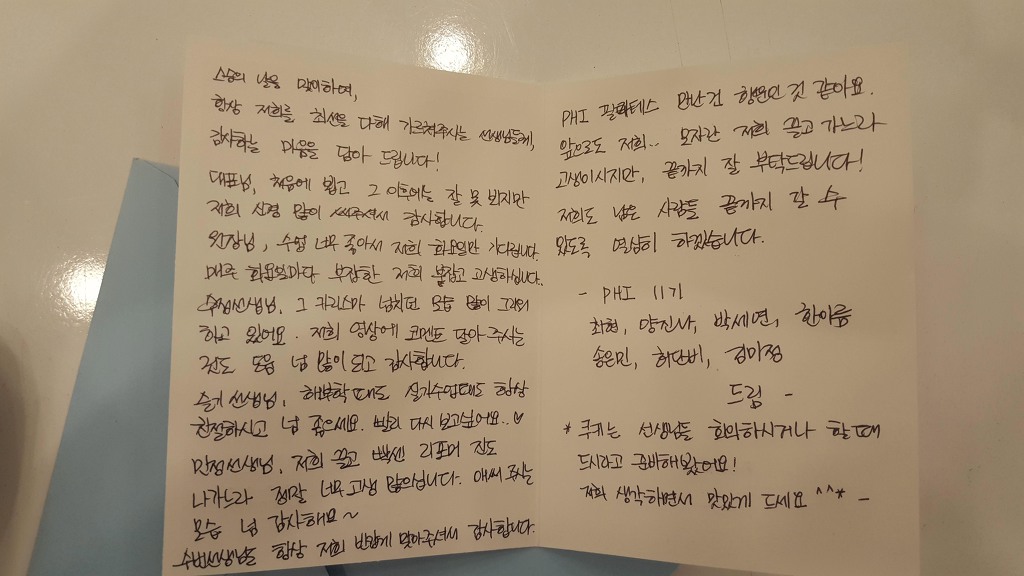 스승의 날을 맞이하여,
항상 저희를 최선을 다해 가르쳐주시는 선생님들께,
감사하는 마음을 담아 드립니다!
대표님, 처음에 뵙고 그 이후에는 잘 못 뵙지만
저희 신경 많이 써주셔서 감사합니다.
원장님, 수업 너무 좋아서 저희 화요일만 기다립니다
매주 화요일마다 부족한 저희 붙잡고 고생하십니다.
수정선생님, 그 카리스마 넘치던 모습 많이 그리워
하고 있어요. 저희 영상에 코멘트 달아 주시는
것도 도움 넘 많이 되고 감사합니다.
슬기선생님, 해부학때도 실기수업때도 항상
친절하시고 넘 좋으세요. 빨리 다시 보고싶어요..♡
민정선생님, 저희 끌고 빡센 리포머 진도
나가느라 정말 너무 고생 많으십니다. 애써 주시는
모습 넘 감사해요~
수빈선생님도 항상 저희 반갑게 맞아주셔서 감사합니다.
PHI 필라테스 만난건 행운인 것 같아요.
앞으로도 저희.. 모자란 저희 끌고 가느라
고생이시지만, 끝까지 잘 부탁드립니다!
저희도 남은 사람들 끝까지 갈 수
있도록 열심히 하겠습니다.
- PHI 11기
최현, 양진나, 박세연, 한아름
송은민, 허단비, 김미정
드림 -
* 쿠키는 선생님들 회의하시거나 할 때
드시라고 준비해봤어요!
저희 생각하면서 맛있게 드세요 ^^* -